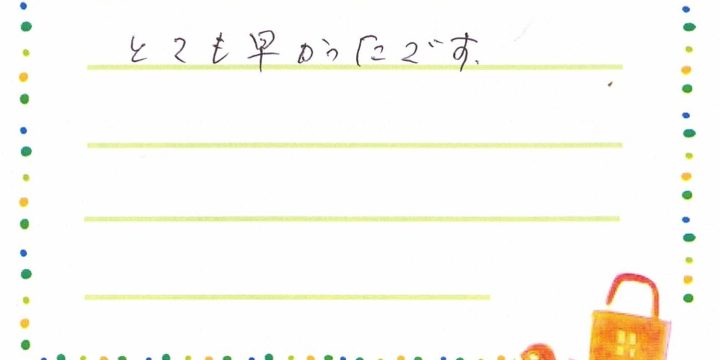 とても早かったです.